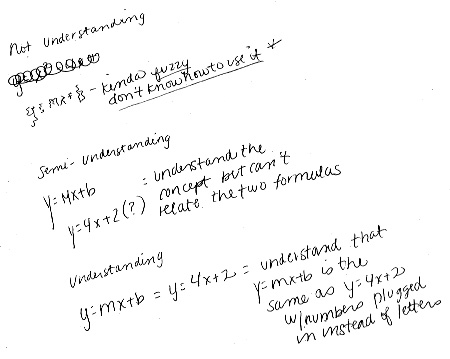 Not Understanding
{ { mx+b } - kinda fuzzy
don't know how to use it
Semi-Understanding
y=mx+b = understand the
concept but can't
y=4x+2(?) relate the two formulas
Understanding
y=mx+b = y=4x+2 = understand that
y=mx+b is the
same as y=4x+2
w/numbers plugged
in instead of letters